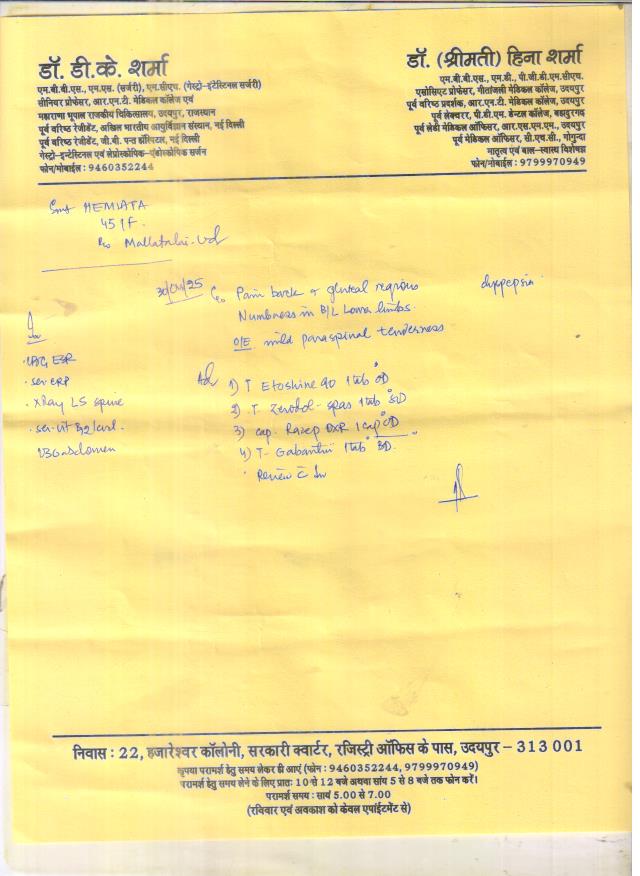 डॉ. डी.के. शर्मा
एम.बी.बी.एस., एम.एस. (सर्जरी), एम.सीएच. (गेस्ट्रो-इंटेस्टिनल सर्जरी)
सीनियर प्रोफेसर, आर.एन.टी. मेडिकल कॉलेज एवं
महाराणा भूपाल राजकीय चिकित्सालय, उदयपुर, राजस्थान
पूर्व वरिष्ठ रेजीडेंट, अखिल भारतीय आयुर्विज्ञान संस्थान, नई दिल्ली
पूर्व वरिष्ठ रेजीडेंट, जी.बी. पन्त हॉस्पिटल, नई दिल्ली
गेस्ट्रो-इन्टेस्टिनल एवं लेप्रोस्कोपिक-एंडोस्कोपिक सर्जन
फोन/मोबाईल : 9460352244
डॉ. (श्रीमती) हिना शर्मा
एम.बी.बी.एस., एम.डी., पी.जी.डी.एम.सीएच.
एसोसिएट प्रोफेसर, गीतांजली मेडिकल कॉलेज, उदयपुर
पूर्व वरिष्ठ प्रदर्शक, आर.एन.टी. मेडिकल कॉलेज, उदयपुर
पूर्व लेक्चरर, पी.डी.एम. डेन्टल कॉलेज, बहादुरगढ़
पूर्व लेडी मेडिकल ऑफिसर, आर.एस.एम.एम., उदयपुर
पूर्व मेडिकल ऑफिसर, सी.एच.सी., गोगुन्दा
मातृत्व एवं बाल-स्वास्थ्य विशेषज्ञ
फोन/मोबाईल : 9799970949
Smt HEMLATA
45/F
R/o Mallatalai-Ud
C/o Pain back & gluteal regions dyspepsia
Numbness in B/L Lower limbs.
O/E mild paraspinal tenderness
Inv
ESR
ser CRP
XRay LS spine
ser vit B12
USG abdomen
Adv 1) T Etoshine 90 1 tab OD
2) T. Zerodol-spas 1 tab BD
3) cap. Razep DXR 1 cap OD
4) T- 1 tab BD
Review c Inv
निवास : 22, हजारेश्वर कॉलोनी, सरकारी क्वार्टर, रजिस्ट्री ऑफिस के पास, उदयपुर – 313 001
कृपया परामर्श हेतु समय लेकर ही आएं (फोन : 9460352244, 9799970949)
परामर्श हेतु समय लेने के लिए प्रातः 10 से 12 बजे अथवा सांय 5 से 8 बजे तक फोन करें।
परामर्श समय : सायं 5.00 से 7.00
(रविवार एवं अवकाश को केवल एपॉइंटमेंट से)